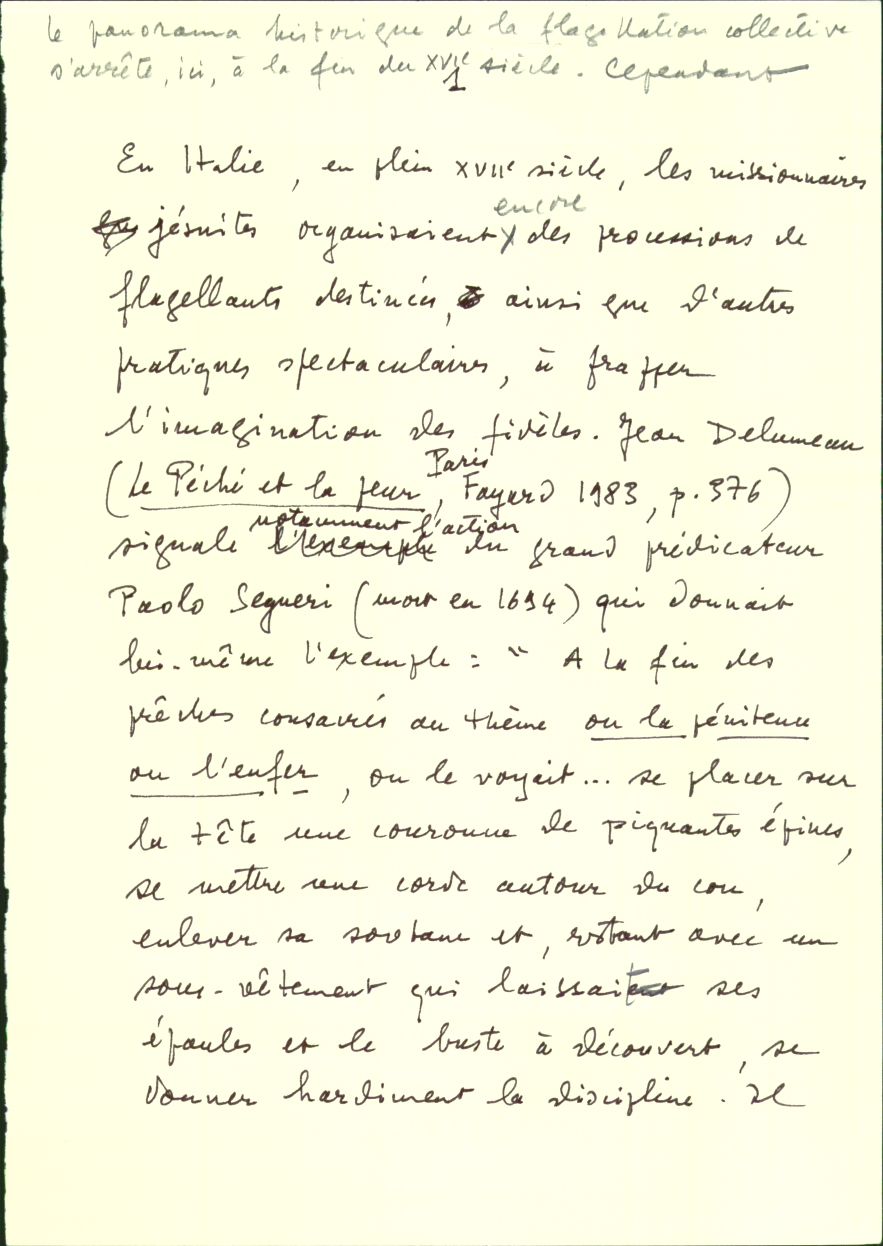 Le panorama historique de la flagellation collective
s'arrête, ici, à la fin du XVIe siècle. Cependant
En Italie, en plein XVIIe siècle, les missionnaires
encore
jésuites organisaient des processions de
flagellants destinées, ainsi que d'autres
pratiques spectaculaires, à frapper
l'imagination des fidèles. Jean Delumeau
Paris
(Le Péché et la peur, Fayard 1983, p. 376)
notamment l'action
signale l'exemple du grand prédicateur
Paolo Segneri (mort en 1694) qui donnait
lui-même l'exemple : " A la fin des
prêches consacrés au thème ou la pénitence
ou l'enfer, on le voyait... se placer sur
la tête une couronne de piquantes épines,
se mettre une corde autour du cou,
enlever sa soutane et, restant avec un
sous-vêtement qui laissait ses
épaules et le buste à découvert, se
donner hardiment la discipline. Il